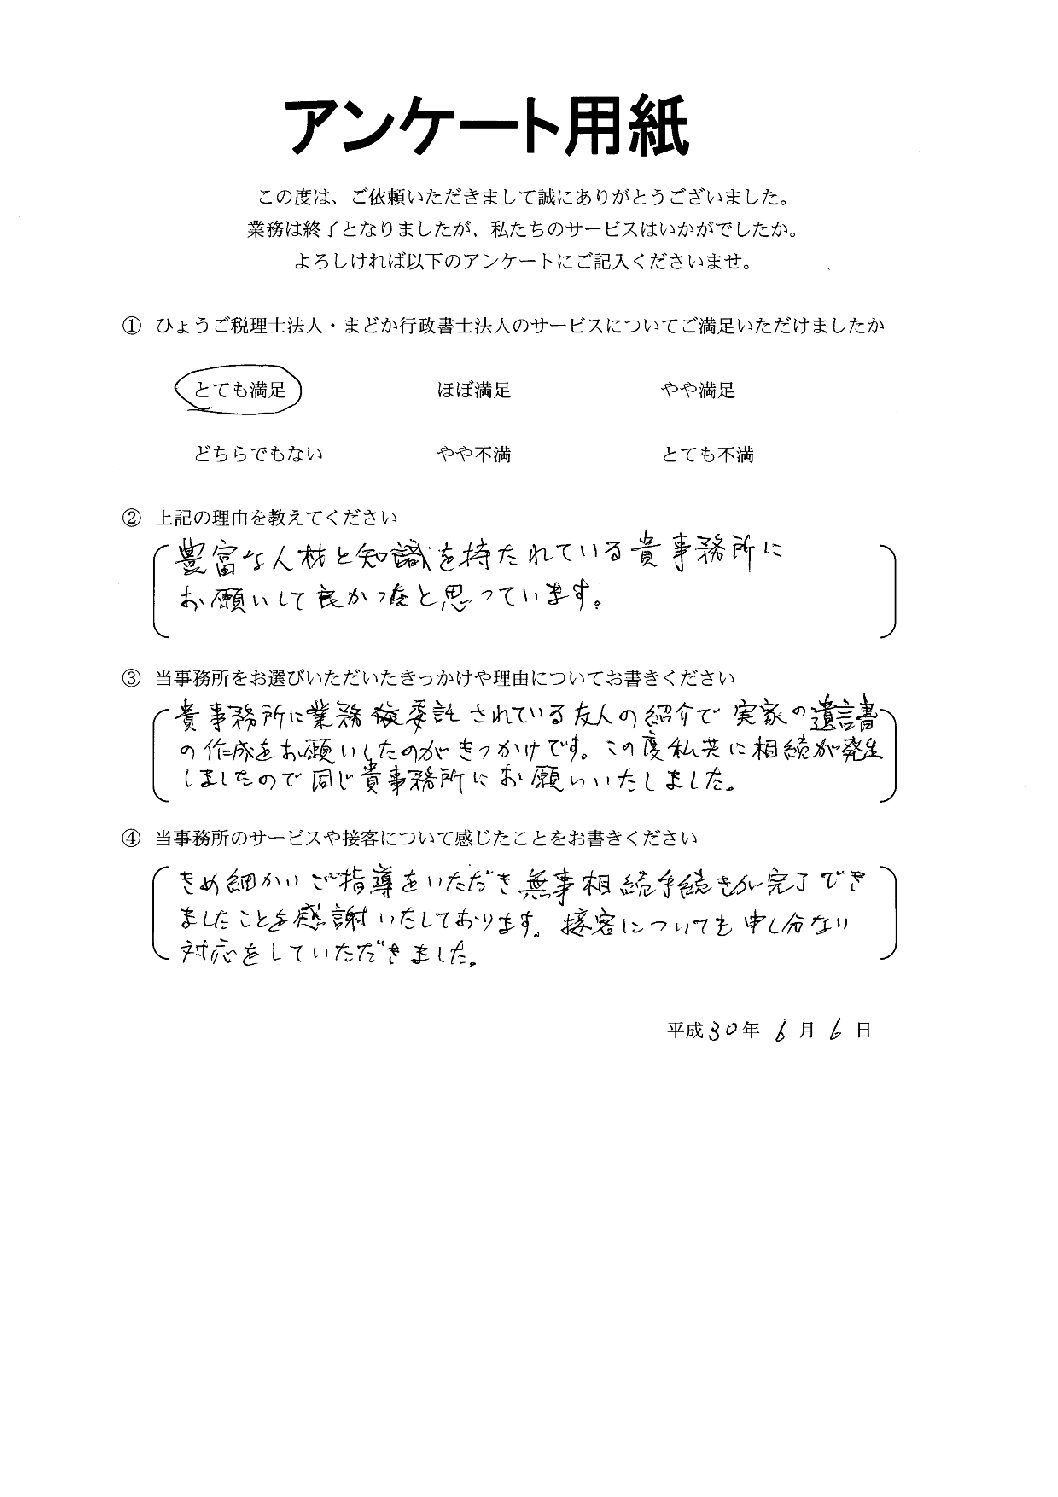 アンケート用紙
この度は、ご依頼いただきまして誠にありがとうございました。
業務は終了となりましたが、私たちのサービスはいかがでしたか。
よろしければ以下のアンケートにご記入くださいませ。
① ひょうご税理士法人・まどか行政書士法人のサービスについてご満足いただけましたか
とても満足 ほぼ満足 やや満足
どちらでもない やや不満 とても不満
② 上記の理由を教えてください
豊富な人材と知識を持たれている貴事務所に
お願いして良かったと思っています。
③ 当事務所をお選びいただいたきっかけや理由についてお書きください
貴事務所に業務を委託されている友人の紹介で実家の遺言書
の作成をお願いしたのがきっかけです。この度私共に相続が発生
しましたので同じ貴事務所にお願いいたしました。
④ 当事務所のサービスや接客について感じたことをお書きください
きめ細かいご指導をいただき無事相続手続きが完了でき
ましたことを感謝いたしております。接客についても申し分ない
対応をしていただきました。
平成30年 6月 6日